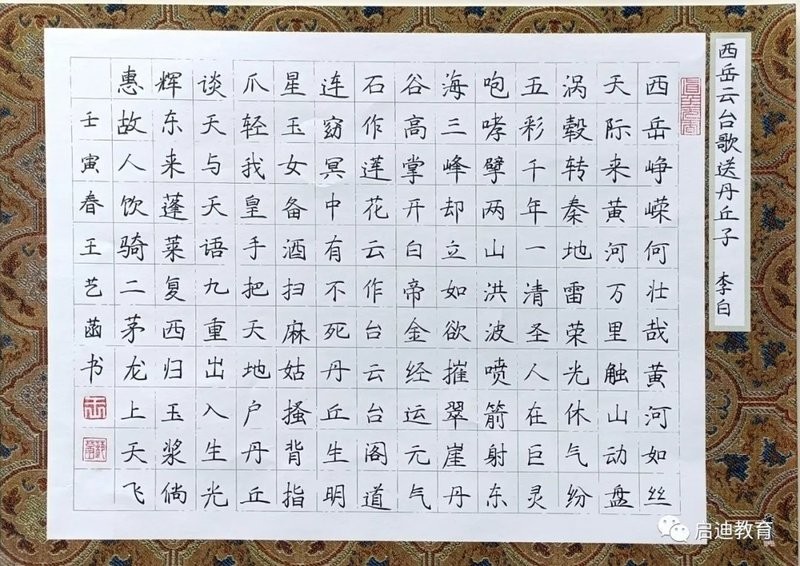 西岳云台歌送丹丘子 李白
西岳峥嵘何壮哉黄河如丝
天际来黄河万里触山动盘
涡毂转秦地雷荣光休气纷
五彩千年一清圣人在巨灵
咆哮擘两山洪波喷箭射东
海三峰却立如欲摧翠崖丹
谷高掌开白帝金经运元气
石作莲花云作台云台阁道
连窈冥中有不死丹丘生明
星玉女备酒扫麻姑搔背指
爪轻我皇手把天地户丹丘
谈天与天语九重出入生光
辉东来蓬莱复西归玉浆倘
惠故人饮骑二茅龙上天飞
壬寅春王艺菡书
启迪教育